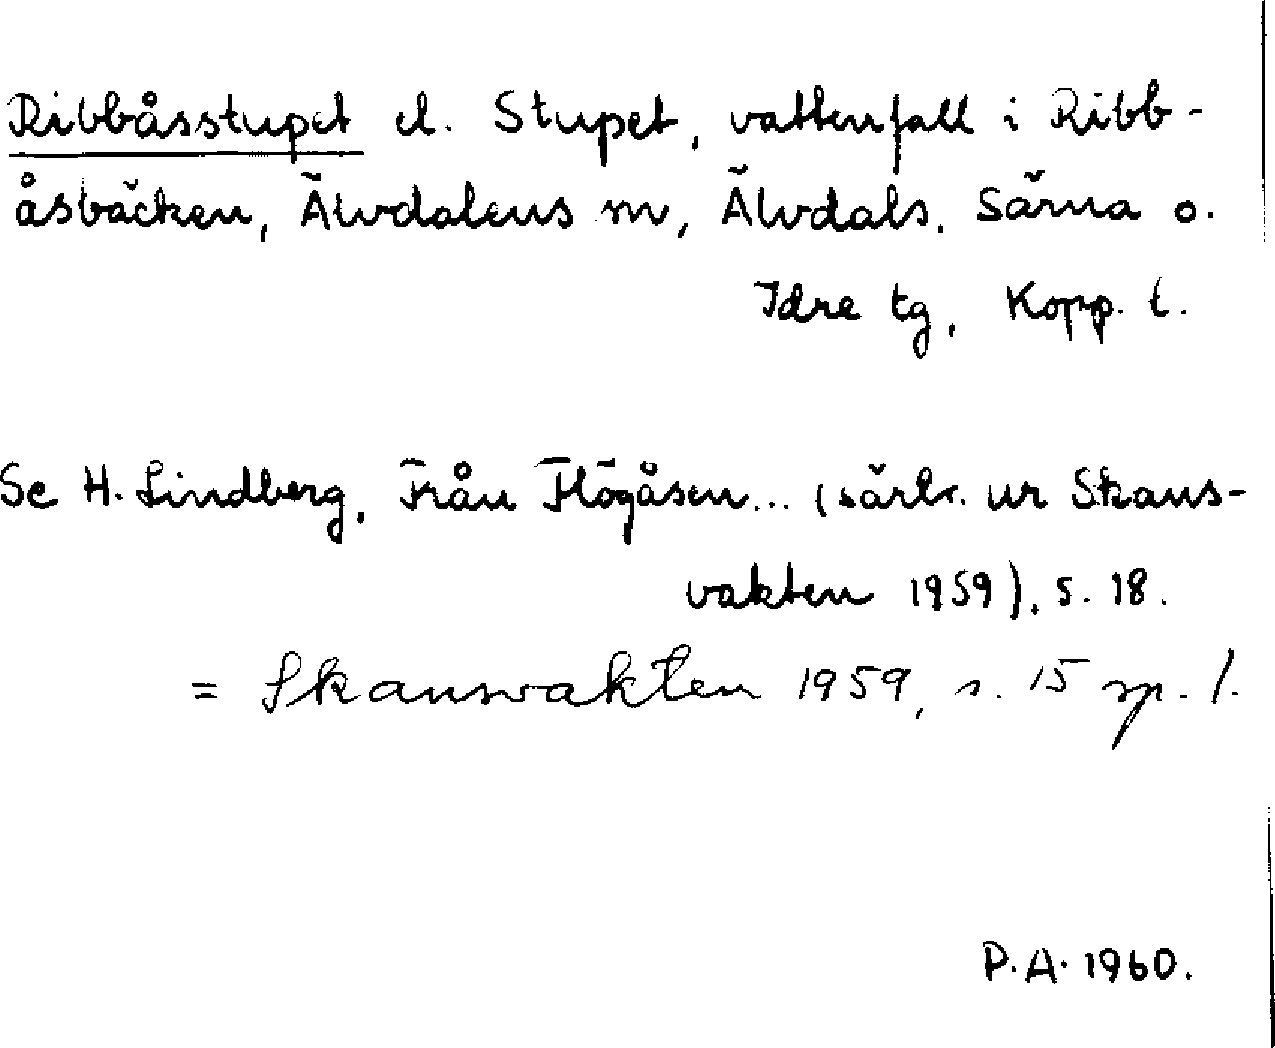 Ribbåsstupet el. Stupet, vattenfall i Ribb-
åsbäcken, Älvdalens sn, Älvdals, Särna o.
Idre tg, Kopp. l.
Se H. Lindberg, Från Flögåsen... (särtr. ur Skans-
vakten 1959), s. 18.
= Skansvakten 1959, s. 15 sp. 1.
P.A. 1960.